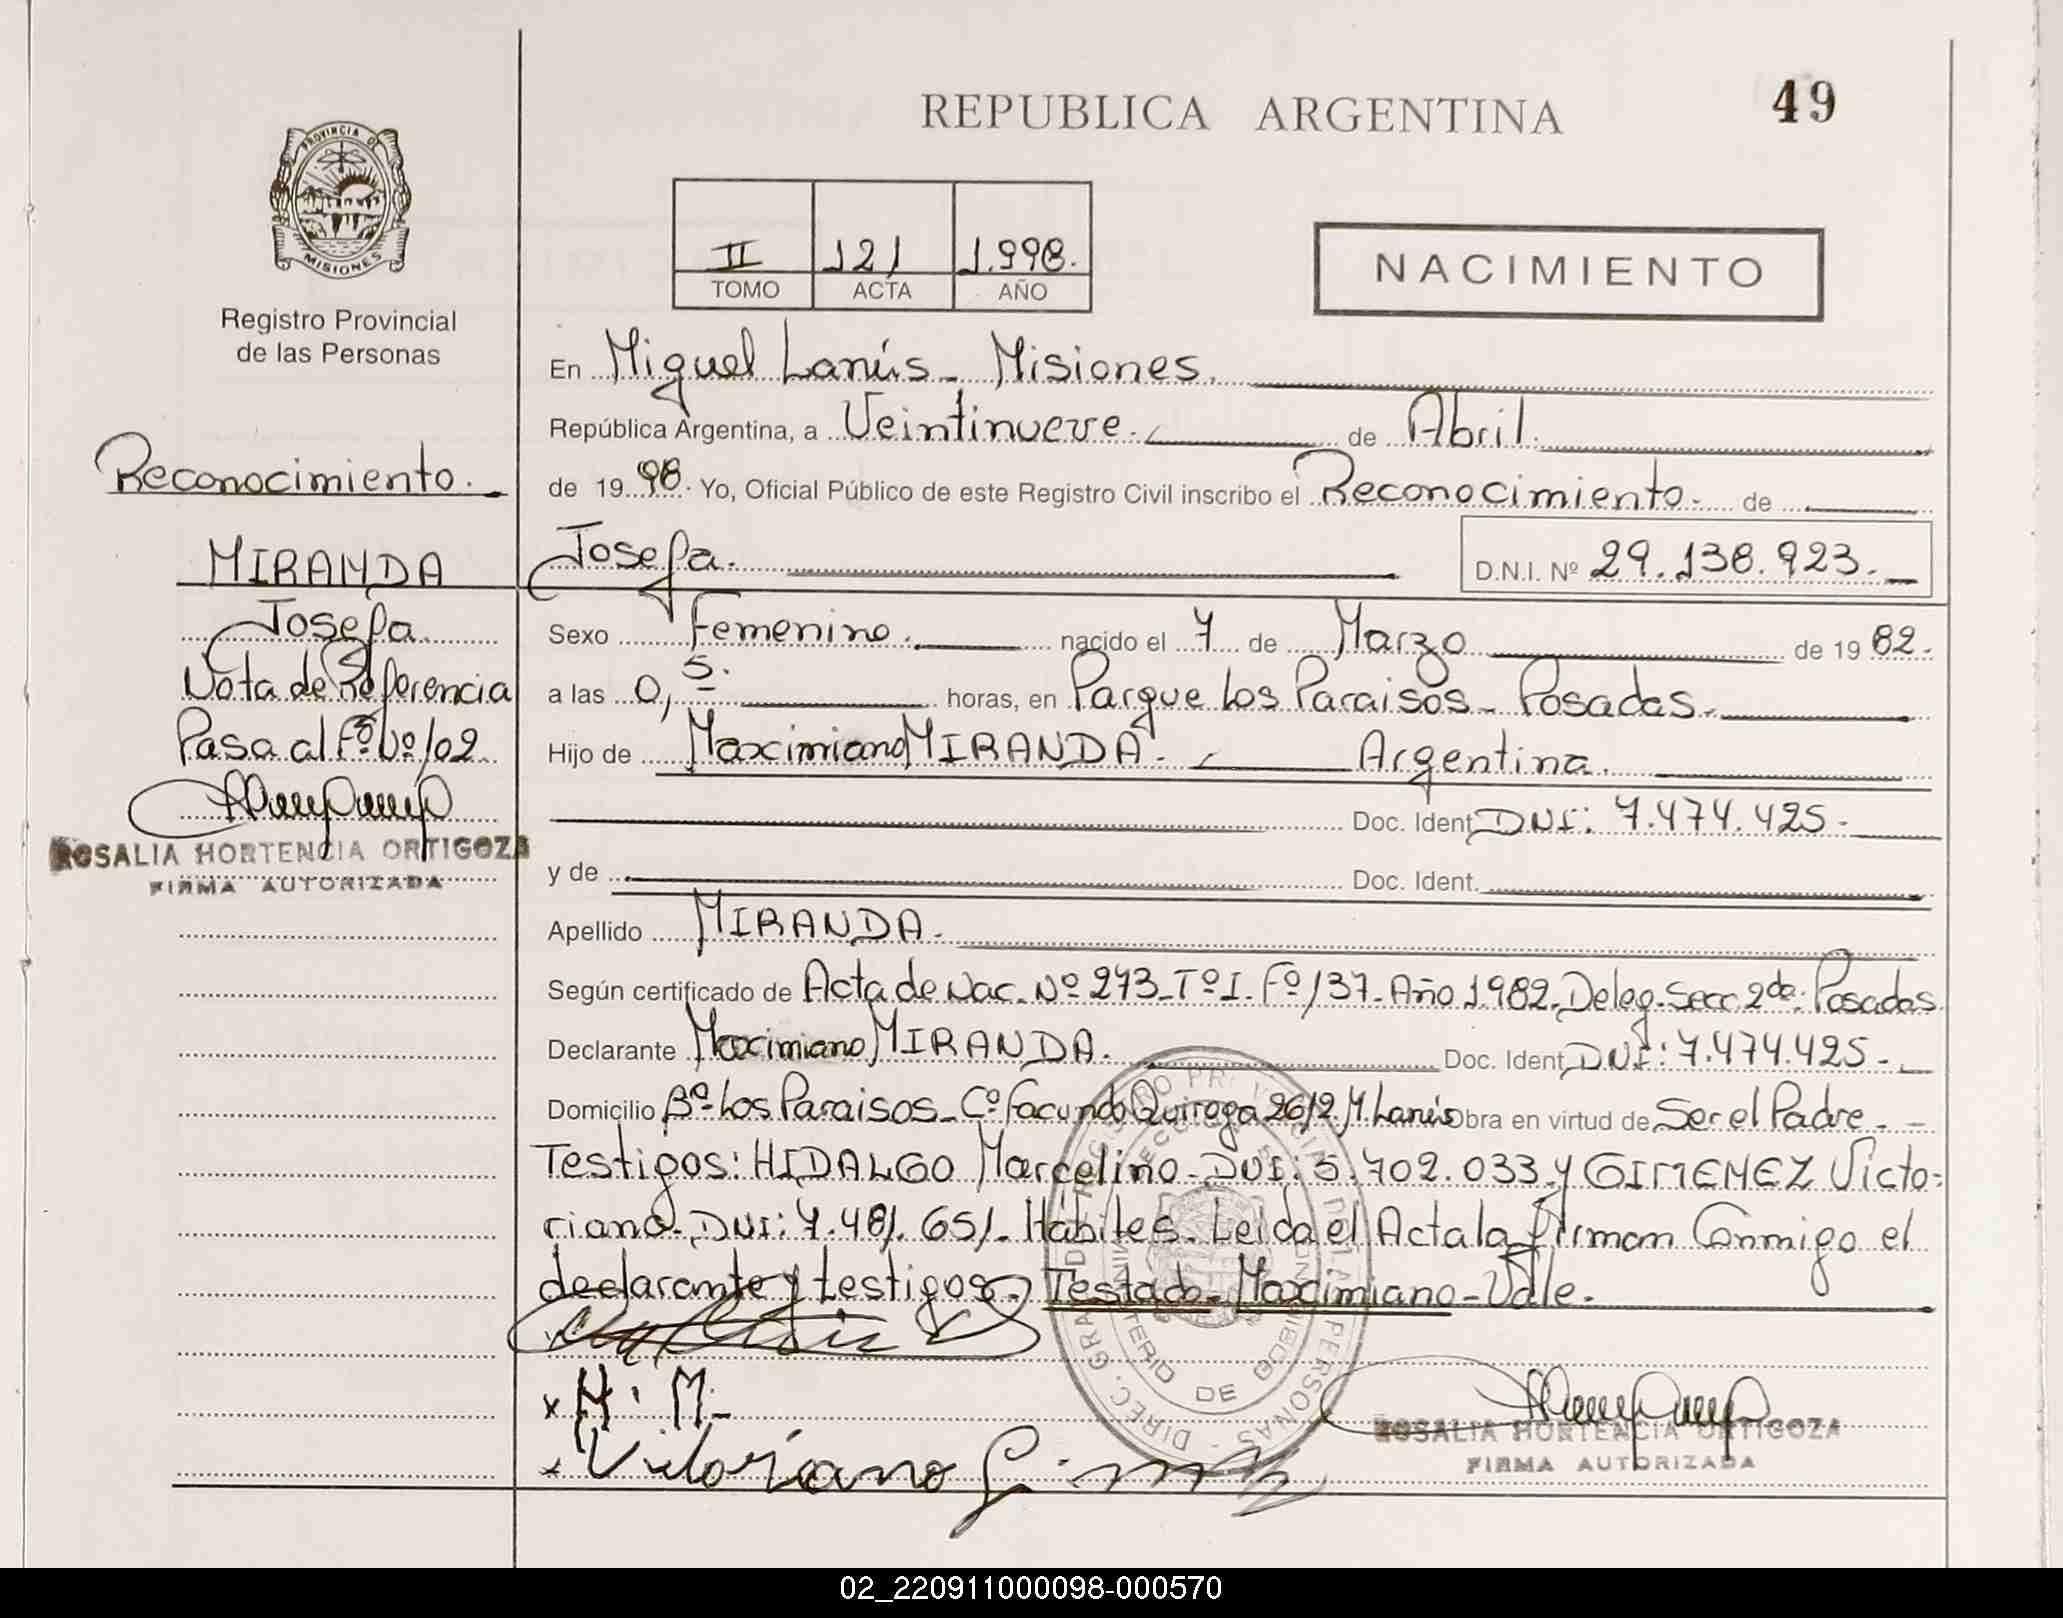 REPUBLICA ARGENTINA
49
PROVINCIA DE
MISIONES
Registro Provincial
de las Personas
II 121 1.998.
TOMO ACTA AÑO
NACIMIENTO
Reconocimiento.
MIRANDA
Josefa
Nota de Referencia
Pasa al Fº Nº 102
ROSALIA HORTENCIA ORTIGOZA
FIRMA AUTORIZADA
En Miguel Lanús - Misiones.
República Argentina, a Veintinueve. de Abril.
de 19 98. Yo, Oficial Público de este Registro Civil inscribo el Reconocimiento. de
Josefa. D.N.I. Nº 29.138.923.
Sexo Femenino. nacido el 7 de Marzo de 19 82.
a las 0,5. horas, en Parque Los Paraisos - Posadas.
Hijo de Maximiano MIRANDA. Argentina.
Doc. Ident. DNI: 7.474.425.
y de Doc. Ident.
Apellido MIRANDA.
Según certificado de Acta de Nac. Nº 273 - Tº I. Fº 137 - Año 1.982. Deleg. Secc 2da. Posadas
Declarante Maximiano MIRANDA. Doc. Ident. DNI: 7.474.425.
Domicilio Bº Los Paraisos - Cº Facundo Quiroga 2612 M. Lanús Obra en virtud de Ser el Padre.
Testigos: HIDALGO Marcelino - DNI: 5.702.033 y GIMENEZ Victo-
riano - DNI: 7.481.651. Hábiles. Leida el Acta la firman Conmigo el
declarante y testigos. Testado - Maximiano - Vale.
x H. M.
x Vitoriano
ROSALIA HORTENCIA ORTIGOZA
FIRMA AUTORIZADA
02_220911000098-000570